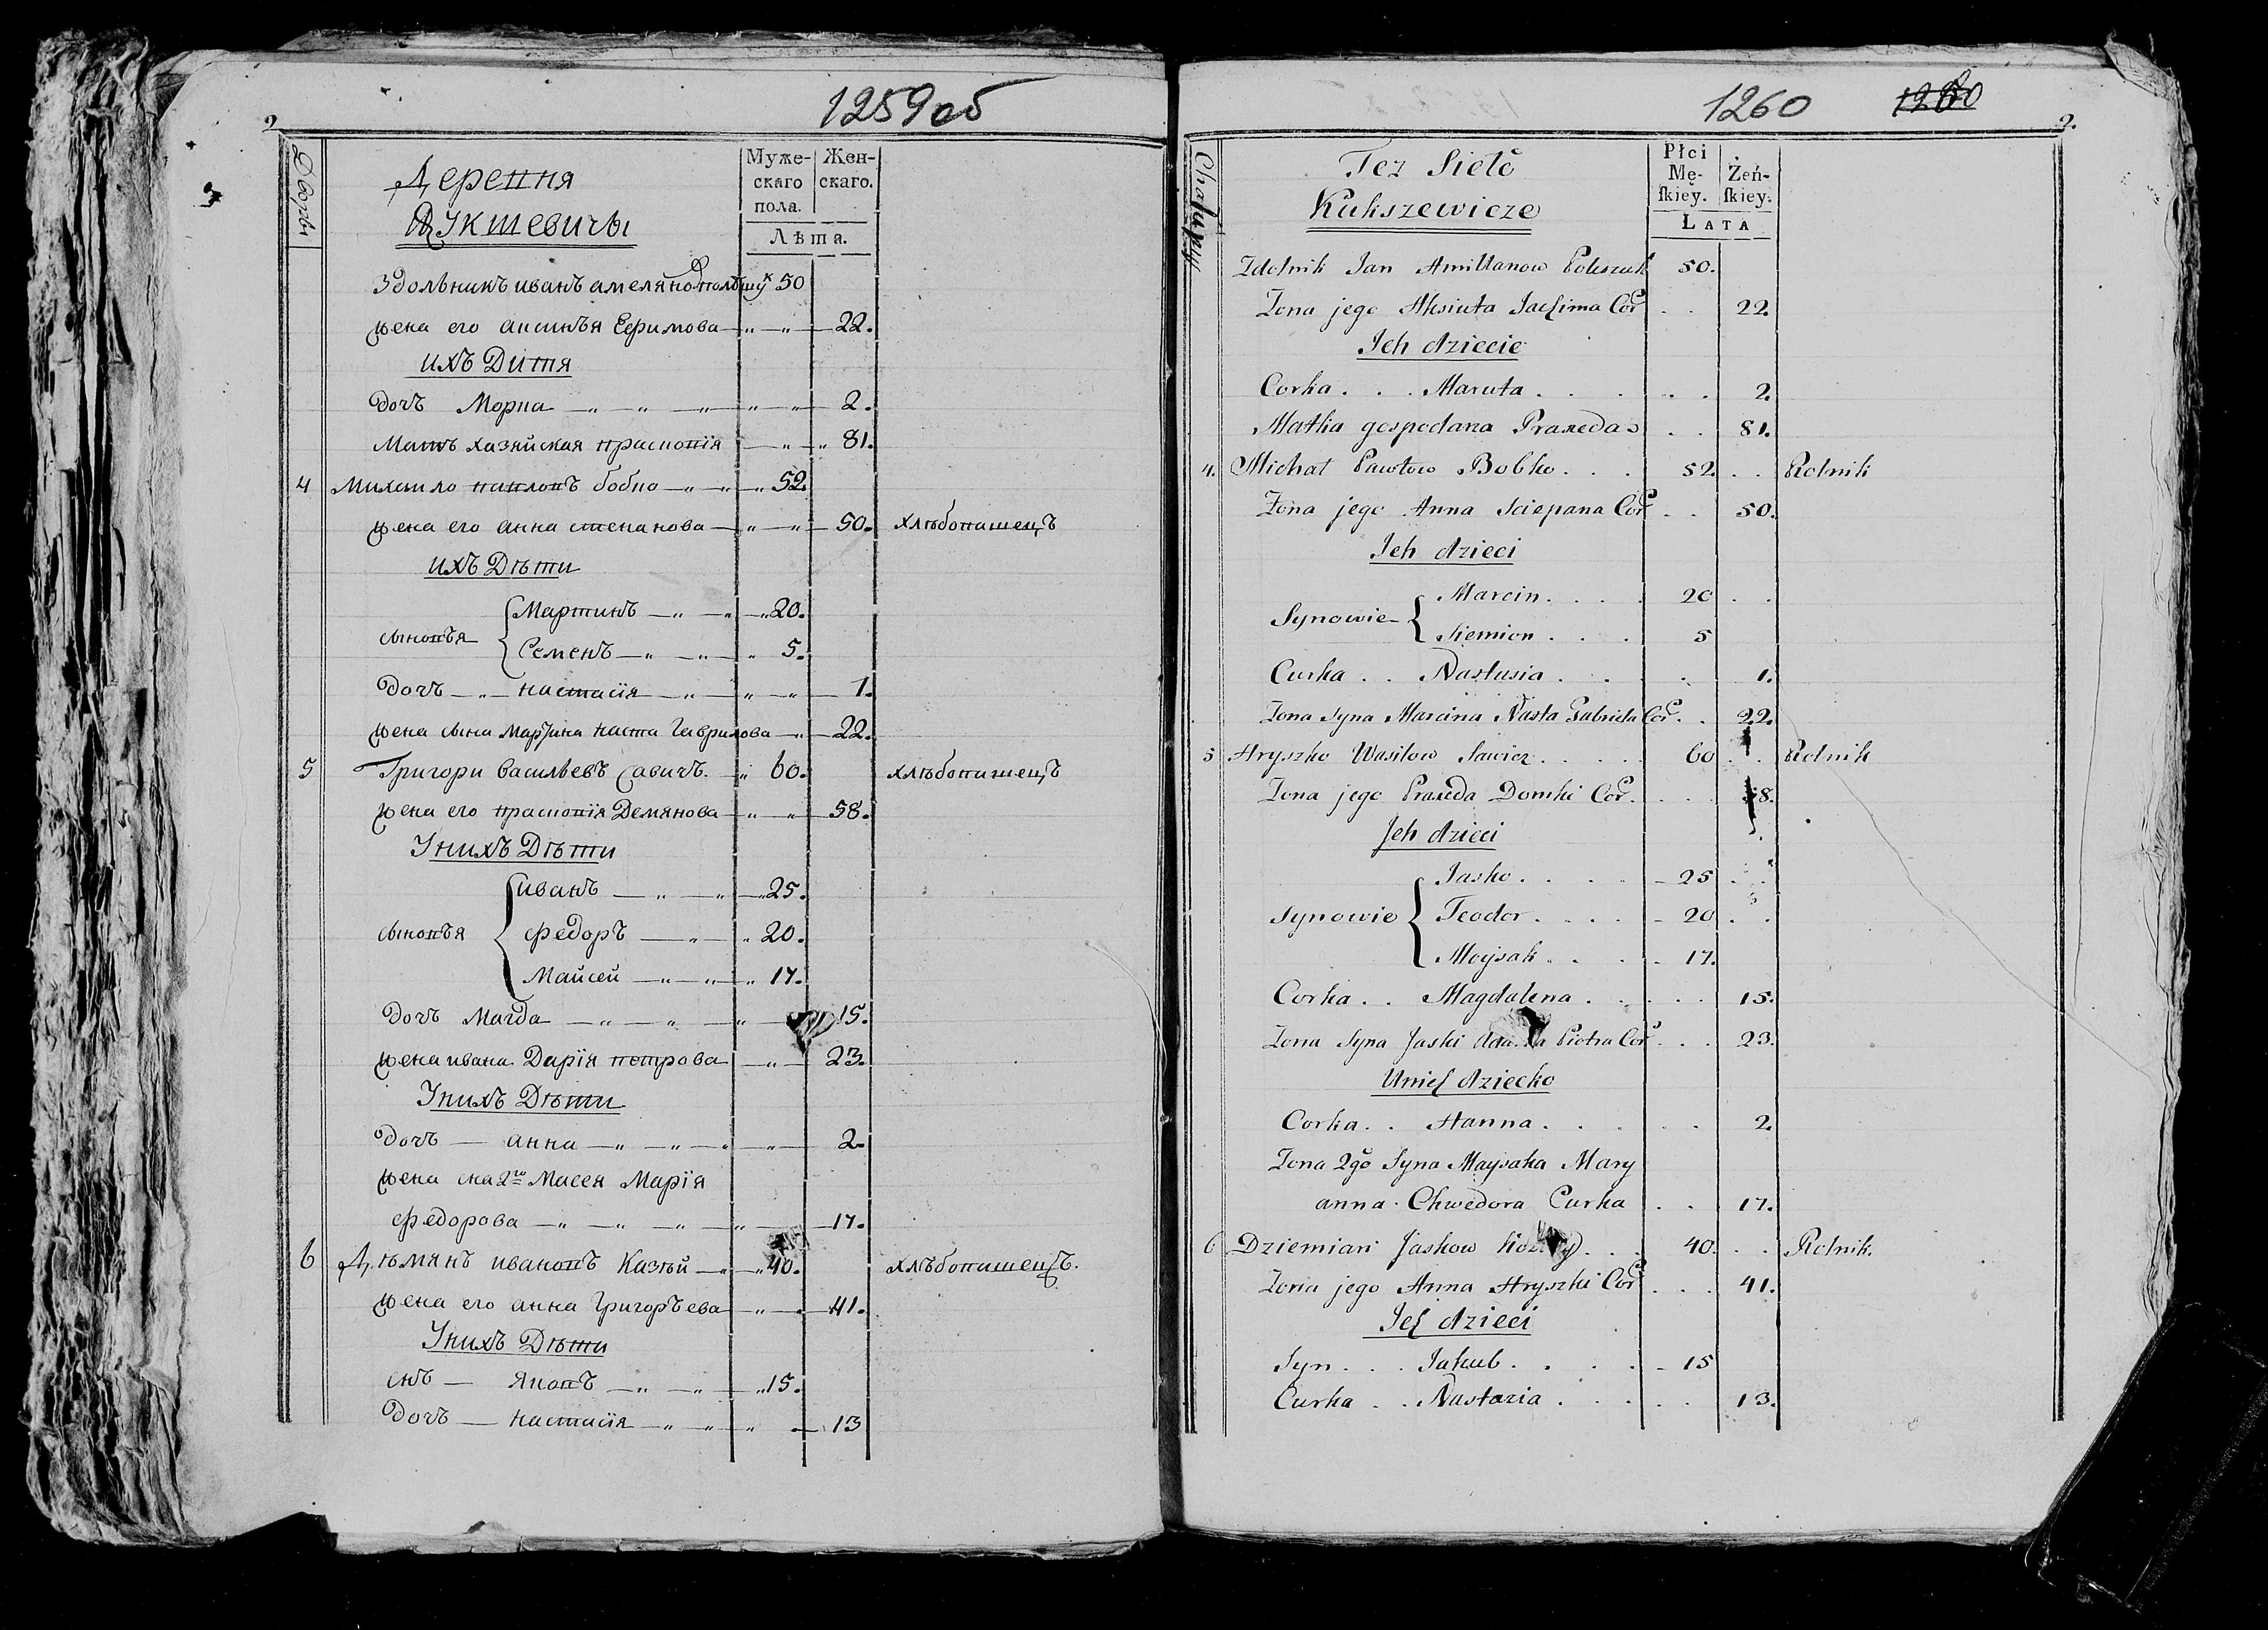 1259об
2
Дворы
Деревня
Кукшевичы
Муже-
скаго
пола.
Жен-
скаго.
Лѣта.
Здольникъ иванъ амеляно 50
жена его аксинъя Ефимова 22.
ихъ Дитя
дочъ Морка 2.
Матъ хазяйская праскопія 81.
4 Михаило павловъ бобко 52
жена его анна степанова 50. хлѣбопашецъ
ихъ Дѣти
сыновъя
Мартинъ 20.
Семенъ 5.
дочъ настасія 1.
жена сына Мартина наста Гаврилова 22.
5 Григори васильевъ савичъ. 60. хлѣбопашецъ
жена его праскопія Демянова 58.
Унихъ Дѣти
сыновъя
иванъ 25.
федоръ 20.
Майсей 17.
дочъ Магда 15.
жена ивана Дарія петрова 23.
Унихъ Дѣти
дочъ анна 2
жена сна 2го Масея Марія
федорова 17.
6 Дѣмянъ ивановъ Казѣй 40. хлѣбопашецъ.
жена его анна Григоръева 41.
Унихъ Дѣти
снъ Яковъ 15.
дочъ настасія 13
1260
1260
2.
Chałupy
Tez Sieło
Kukszewicze
Płci
Mę-
ſkiey.
Żeń-
ſkiey.
LATA
Zdolnik Jan Amillanow Poleszuk 50.
Zona jego Aksiuta Jachima Cor 22.
Jch dziecie
Corka . . . Maruta . 2.
Matka gospodarza Praxeda 81.
4. Michał Pawłow Bobko . . . 52. Rolnik
Zona jego Anna Sciepana Cor 50.
Jch dzieci
Synowie
Marcin . . . . 20
Siemion . . . 5
Curka . . Nastusia . . . 1.
Zona Syna Marcina Nasta Gabriela Cor. 22.
5 Hryszko Wasilow Sawicz . . . . 60 Rolnik
Zona jego Praxeda Domki Cor. 58.
Jch dzieci
Synowie
Jasko . . . . 25
Teodor . . . . 20
Moysak . . . 17.
Corka . . Magdalena . . 15.
Zona Syna Jaski Piotra Cor 23.
Unich dziecko
Corka . . Hanna . . . . 2.
Zona 2go Syna Maysaka Mary
anna Chwedora Curka . . 17.
6 Dziemian Jaskow . . . 40. Rolnik.
Zona jego Anna Hryszki Cor 41.
Jch dzieci
Syn . . . Jakub . . . . 15
Curka . . Nastazia . . . 13.